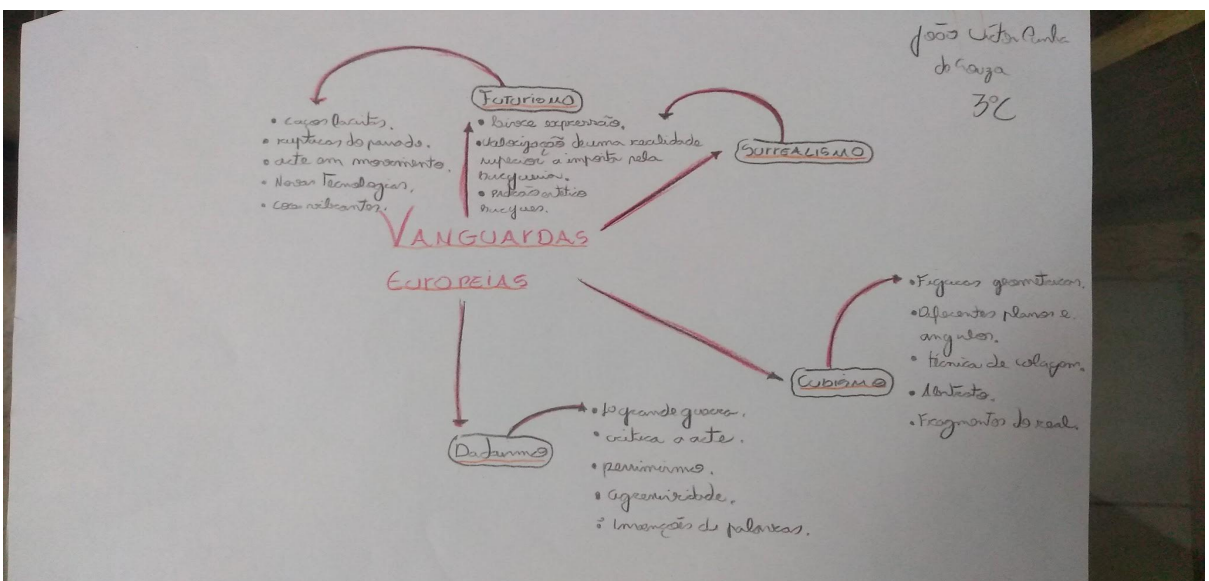 João Victor Cunha
de Souza
3ºC
Futurismo
• rupturas do passado.
• arte em movimento.
• Novas Tecnologias.
• Cores vibrantes.
Surrealismo
• busca expressão.
• valorização de uma realidade
superior a imposta pela
burguesia.
• padrão artístico
burgues.
Vanguardas
Europeias
Cubismo
• Figuras geometricas.
• Diferentes planos e
angulos.
• técnica de colagem.
• Abstrato.
• Fragmentos do real.
Dadaismo
• 1º grande guerra.
• critica a arte.
• pessimismo.
• agressividade.
• Invenções de palavras.